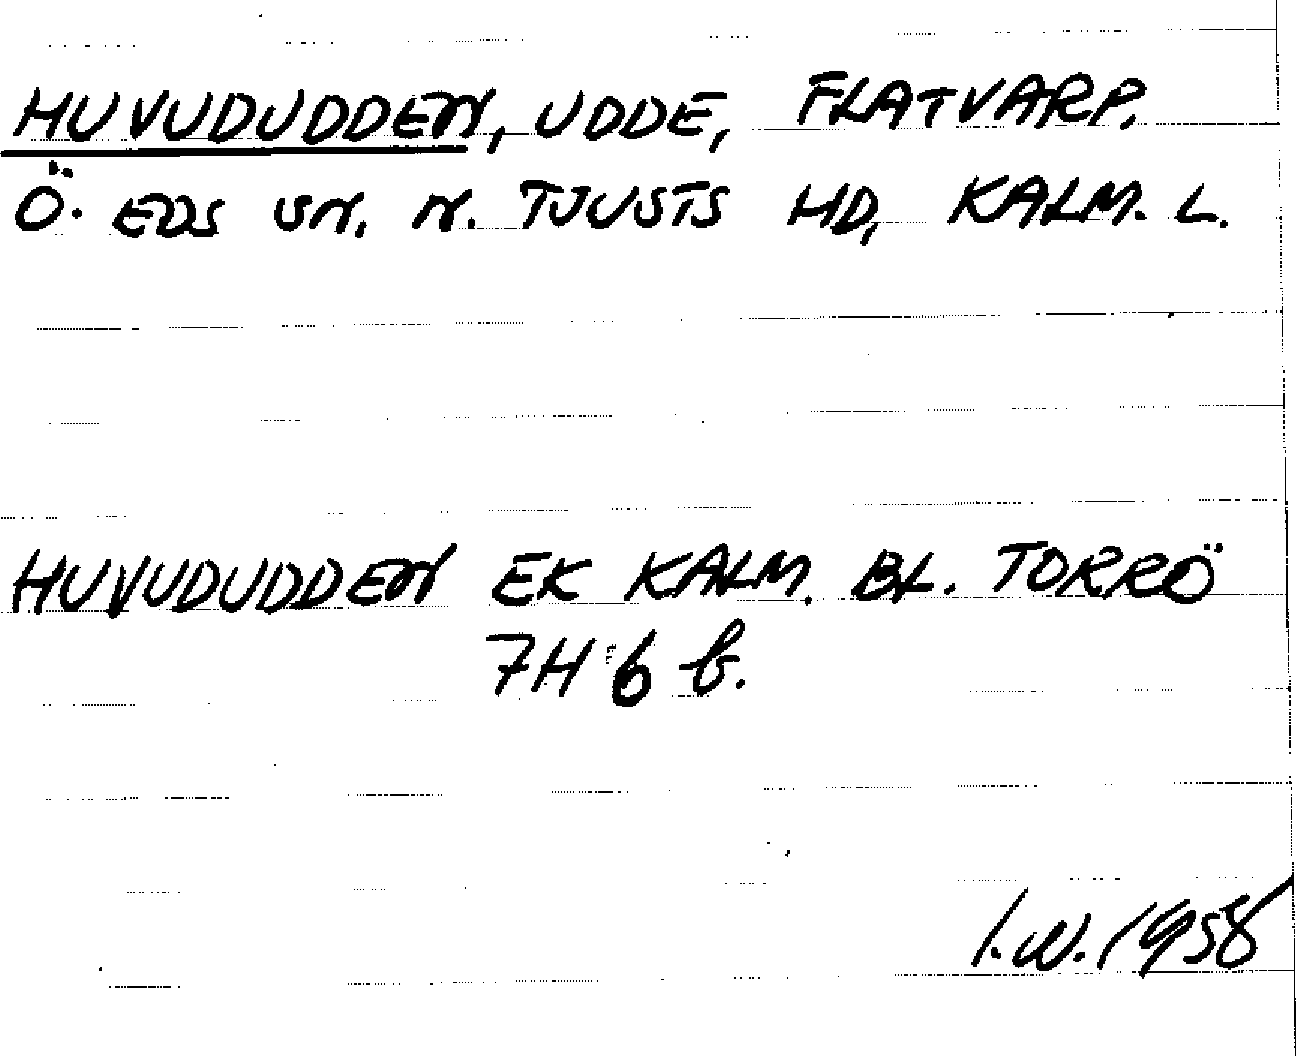 HUVUDUDDEN, UDDE, FLATVARP.
Ö. EDS SN. N. TJUSTS HD, KALM. L.
HUVUDUDDEN EK KALM. BL. TORRÖ
7H 6 b.
I.W. 1958